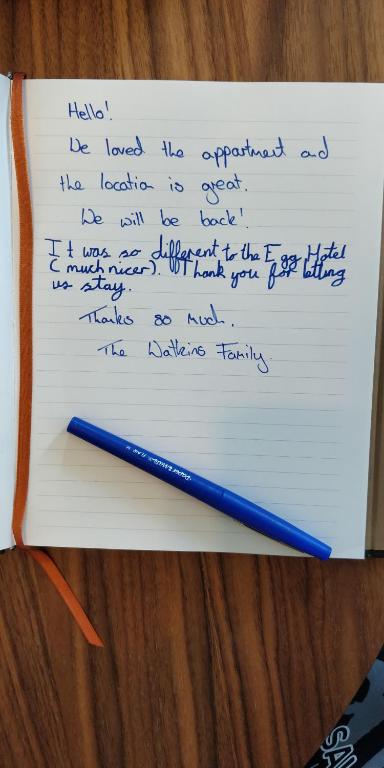 Hello!
We loved the appartment and
the location is great.
We will be back!
It was so different to the Egg Hotel
(much nicer). Thank you for letting
us stay.
Thanks so much.
The Watkins Family.
Paper Mate FLAIR M
SA